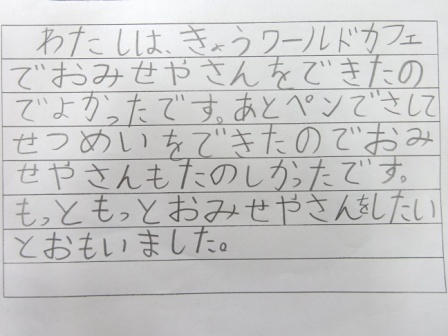 わたしは、きょうワールドカフェ
でおみせやさんをできたの
でよかったです。あとペンでさして
せつめいをできたのでおみ
せやさんもたのしかったです。
もっともっとおみせやさんをしたい
とおもいました。